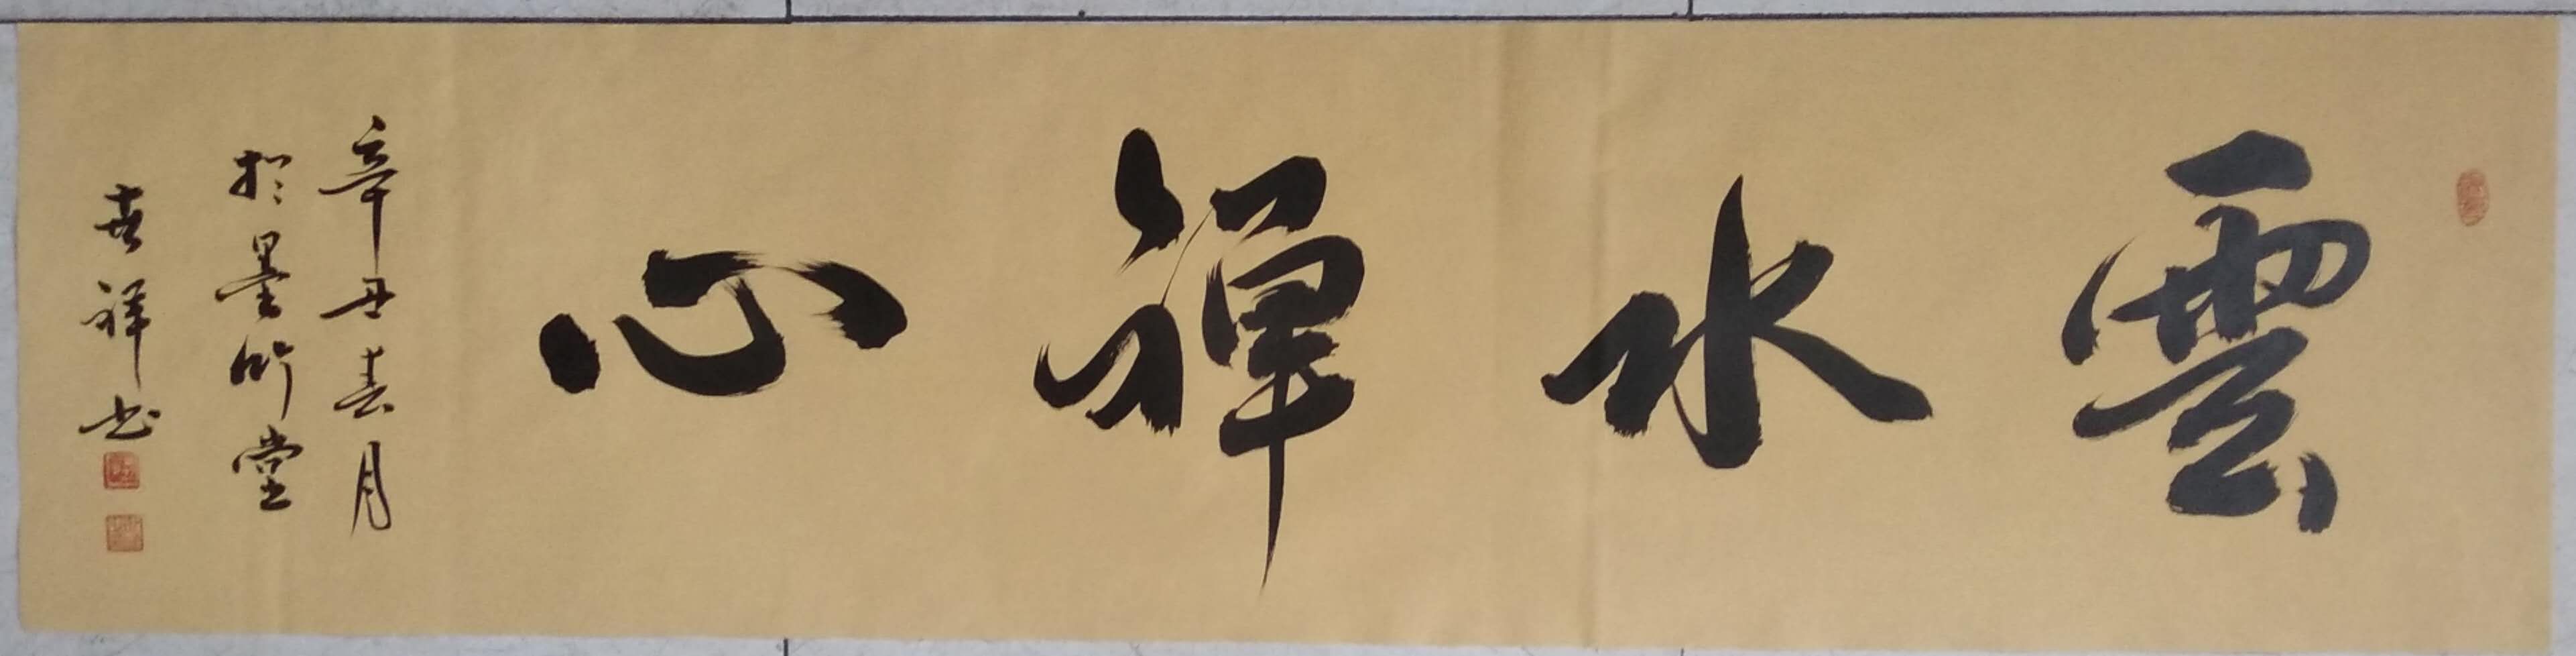 雲水禪心
辛丑春月
於墨竹堂
喜祥书